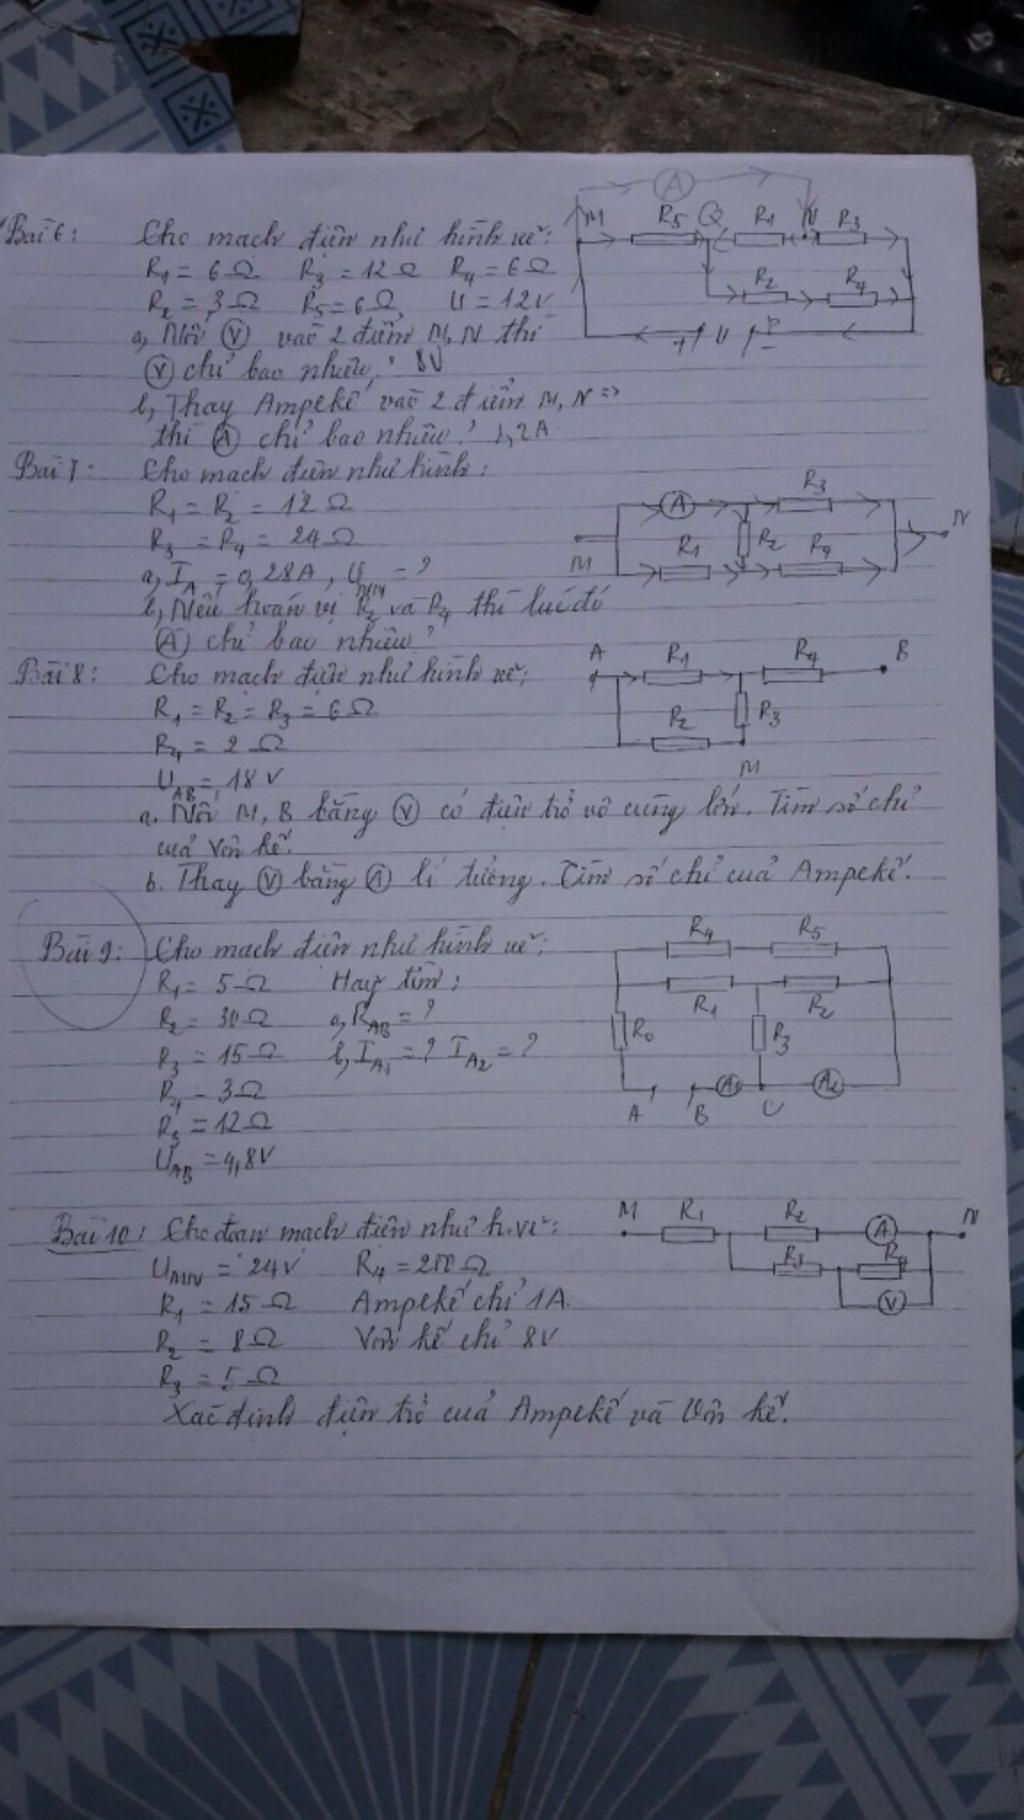 Bài 6: Cho mạch điện như hình vẽ:
R1 = 6Ω R3 = 12Ω R4 = 6Ω
R2 = 3Ω R5 = 6Ω, U = 12V
a, Nối (V) vào 2 điểm M, N thì
(V) chỉ bao nhiêu? 8V
b, Thay Ampekế vào 2 điểm M, N =>
thì (A) chỉ bao nhiêu? 1,2A
A
M R5 Q R1 N R3
R2 R4
+ U P -
Bài 7: Cho mạch điện như hình:
R1 = R2 = 12Ω
R3 = R4 = 24Ω
a, IA = 0,28A, UMN = ?
b, Nếu hoán vị R2 và R4 thì lúc đó
(A) chỉ bao nhiêu?
A R3 N
M R1 R2 R4
Bài 8: Cho mạch điện như hình vẽ:
R1 = R2 = R3 = 6Ω
R4 = 2Ω
UAB = 18V
a. Nối M, B bằng (V) có điện trở vô cùng lớn. Tìm số chỉ
của Vôn kế.
b. Thay (V) bằng (A) lí tưởng. Tìm số chỉ của Ampekế.
A R1 R4 B
R2 R3
M
Bài 9: Cho mạch điện như hình vẽ:
R1 = 5Ω Hãy tìm:
R2 = 30Ω a, RAB = ?
R3 = 15Ω b, IA1 = ? IA2 = ?
R4 = 3Ω
R5 = 12Ω
UAB = 4,8V
R4 R5
R1 R2
R0 R3
A B A1 C A2
Bài 10: Cho đoạn mạch điện như h.vẽ:
UMN = 24V R4 = 200Ω
R1 = 15Ω Ampekế chỉ 1A
R2 = 8Ω Vôn kế chỉ 8V
R3 = 5Ω
Xác định điện trở của Ampekế và Vôn kế.
M R1 R2 A N
R3 R4
V